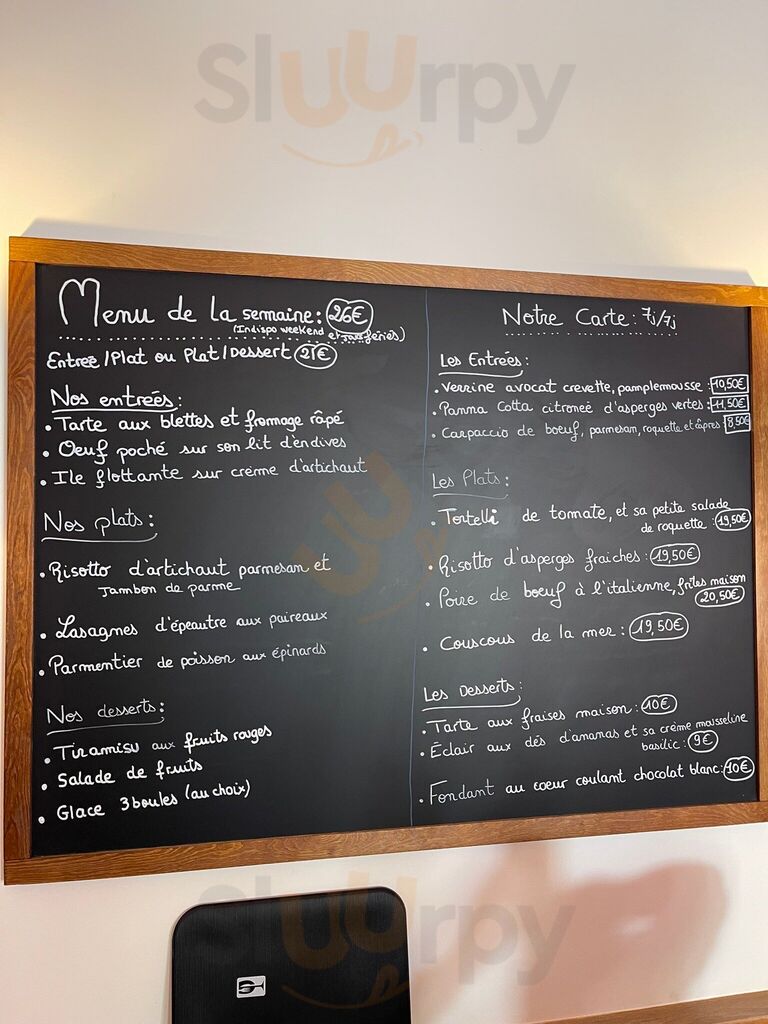 Sluurpy
Menu de la semaine: 26€
(Indispo weekend et jours fériés)
Entrée/Plat ou Plat/Dessert 21€
Nos entrées:
• Tarte aux blettes et fromage râpé
• Oeuf poché sur son lit d'endives
• Ile flottante sur crème d'artichaut
Nos plats:
• Risotto d'artichaut parmesan et
Jambon de parme
• Lasagnes d'épeautre aux poireaux
• Parmentier de poisson aux épinards
Nos desserts:
• Tiramisu aux fruits rouges
• Salade de fruits
• Glace 3 boules (au choix)
Notre Carte: 7j/7j
Les Entrées:
• Verrine avocat crevette, pamplemousse: 10,50€
• Panna Cotta citroneé d'asperges vertes: 11,50€
• Carpaccio de boeuf, parmesan, roquette et câpres: 8,50€
Les Plats:
• Tortelli de tomate, et sa petite salade
de roquette: 19,50€
• Risotto d'asperges fraiches: 19,50€
• Poire de boeuf à l'italienne, frites maison
20,50€
• Couscous de la mer: 19,50€
Les Desserts:
• Tarte aux fraises maison: 10€
• Éclair aux dés d'ananas et sa crème mousseline
basilic: 9€
• Fondant au coeur coulant chocolat blanc: 10€
Sluurpy